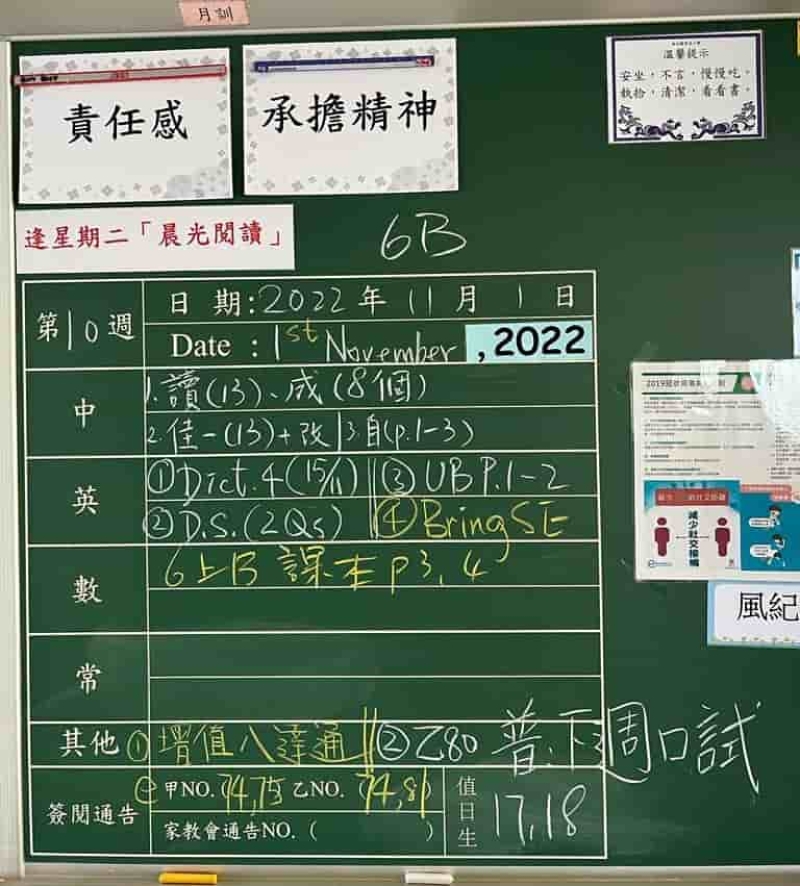 月訓
責任感
承擔精神
溫馨提示
安坐，不言，慢慢吃。
執拾，清潔，看看書。
逢星期二「晨光閱讀」
6B
第10週
日期:2022年11月1日
Date : 1st November ,2022
中
1.讀(13)、成(8個)
2.佳一(13)+改|3.自(p.1-3)
英
①Dict.4(15/11) ③UB P.1-2
②D.S.(2Qs) ④Bring SE
數
6上B 課本 P3, 4
常
其他
①增值八達通 ②乙80
普:下周口試
簽閱通告
甲NO. (74,75 乙NO. (74,81
家教會通告NO. ( )
值日生
17,18
減少社交接觸
風紀